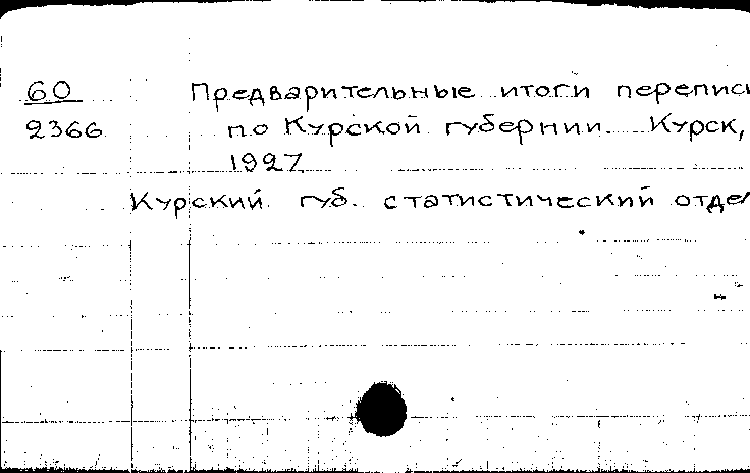 60
2366
Предварительные итоги переписи
по Курской губернии. Курск,
1927
Курский губ. статистический отдел